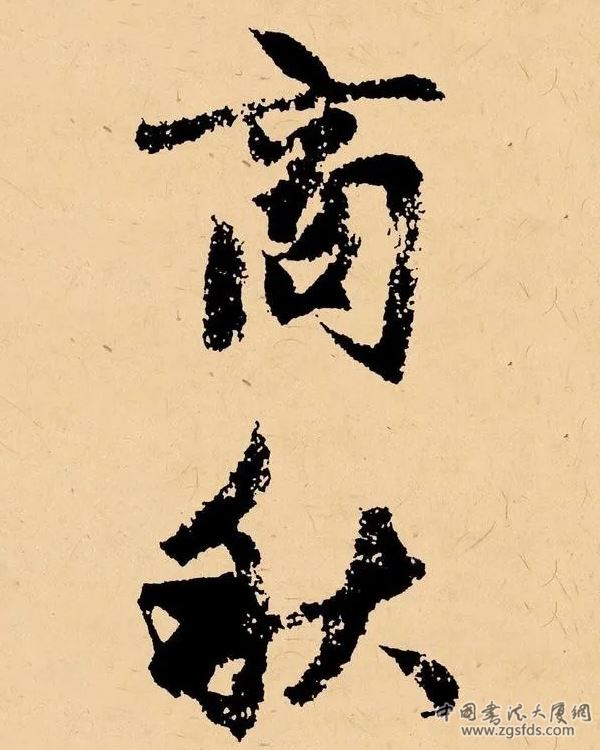 商
秋
中国书法大厦网
www.zgsfds.com